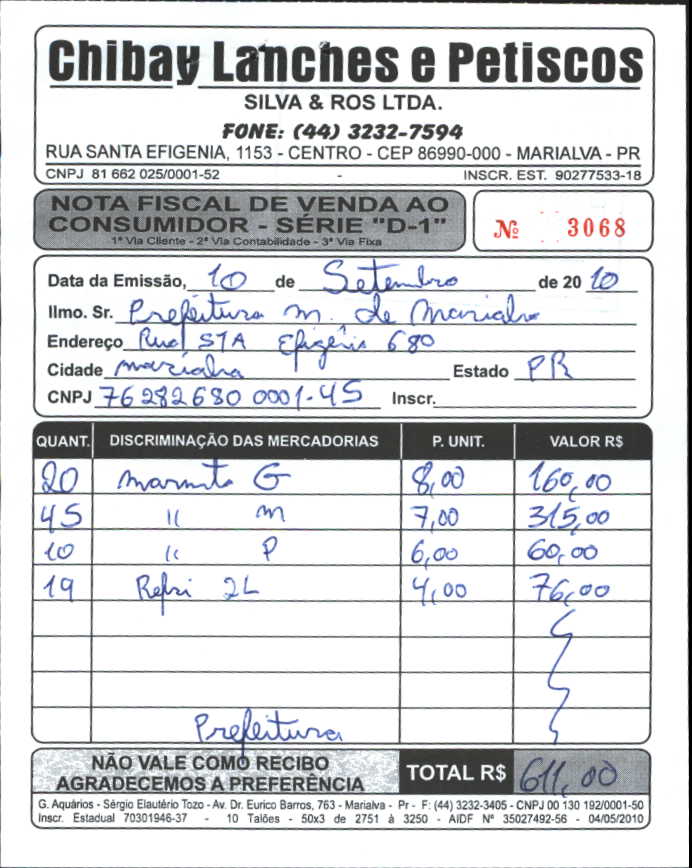 Chibay Lanches e Petiscos
SILVA & ROS LTDA.
FONE: (44) 3232-7594
RUA SANTA EFIGENIA, 1153 - CENTRO - CEP 86990-000 - MARIALVA - PR
CNPJ 81 662 025/0001-52 - INSCR. EST. 90277533-18
NOTA FISCAL DE VENDA AO
CONSUMIDOR - SÉRIE "D-1"
1ª Via Cliente - 2ª Via Contabilidade - 3ª Via Fixa
Nº 3068
Data da Emissão, 10 de Setembro de 20 10
Ilmo. Sr. Prefeitura M. de Marialva
Endereço Rua STA Efigênia 680
Cidade Marialva Estado PR
CNPJ 76282680 0001-45 Inscr.
QUANT. DISCRIMINAÇÃO DAS MERCADORIAS P. UNIT. VALOR R$
20 Marmita G 8,00 160,00
45 " M 7,00 315,00
10 " P 6,00 60,00
19 Refri 2L 4,00 76,00
Prefeitura
NÃO VALE COMO RECIBO
AGRADECEMOS A PREFERÊNCIA
TOTAL R$ 611,00
G. Aquários - Sérgio Elautério Tozo - Av. Dr. Eurico Barros, 763 - Marialva - Pr - F: (44) 3232-3405 - CNPJ 00 130 192/0001-50
Inscr. Estadual 70301946-37 - 10 Talões - 50x3 de 2751 à 3250 - AIDF Nº 35027492-56 - 04/05/2010